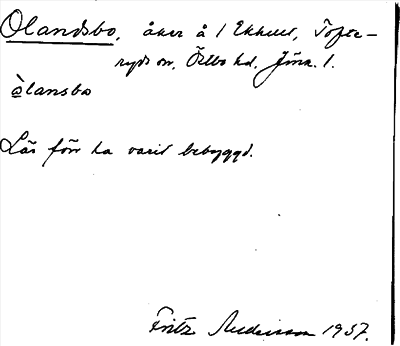 Olandsbo, åker å 1 Ekhult, Tofte-
ryds sn, Östbo hd, Jönk. l.
òlansbo
Läs förr ha varit bebyggd.
Fritz Andersson 1937.